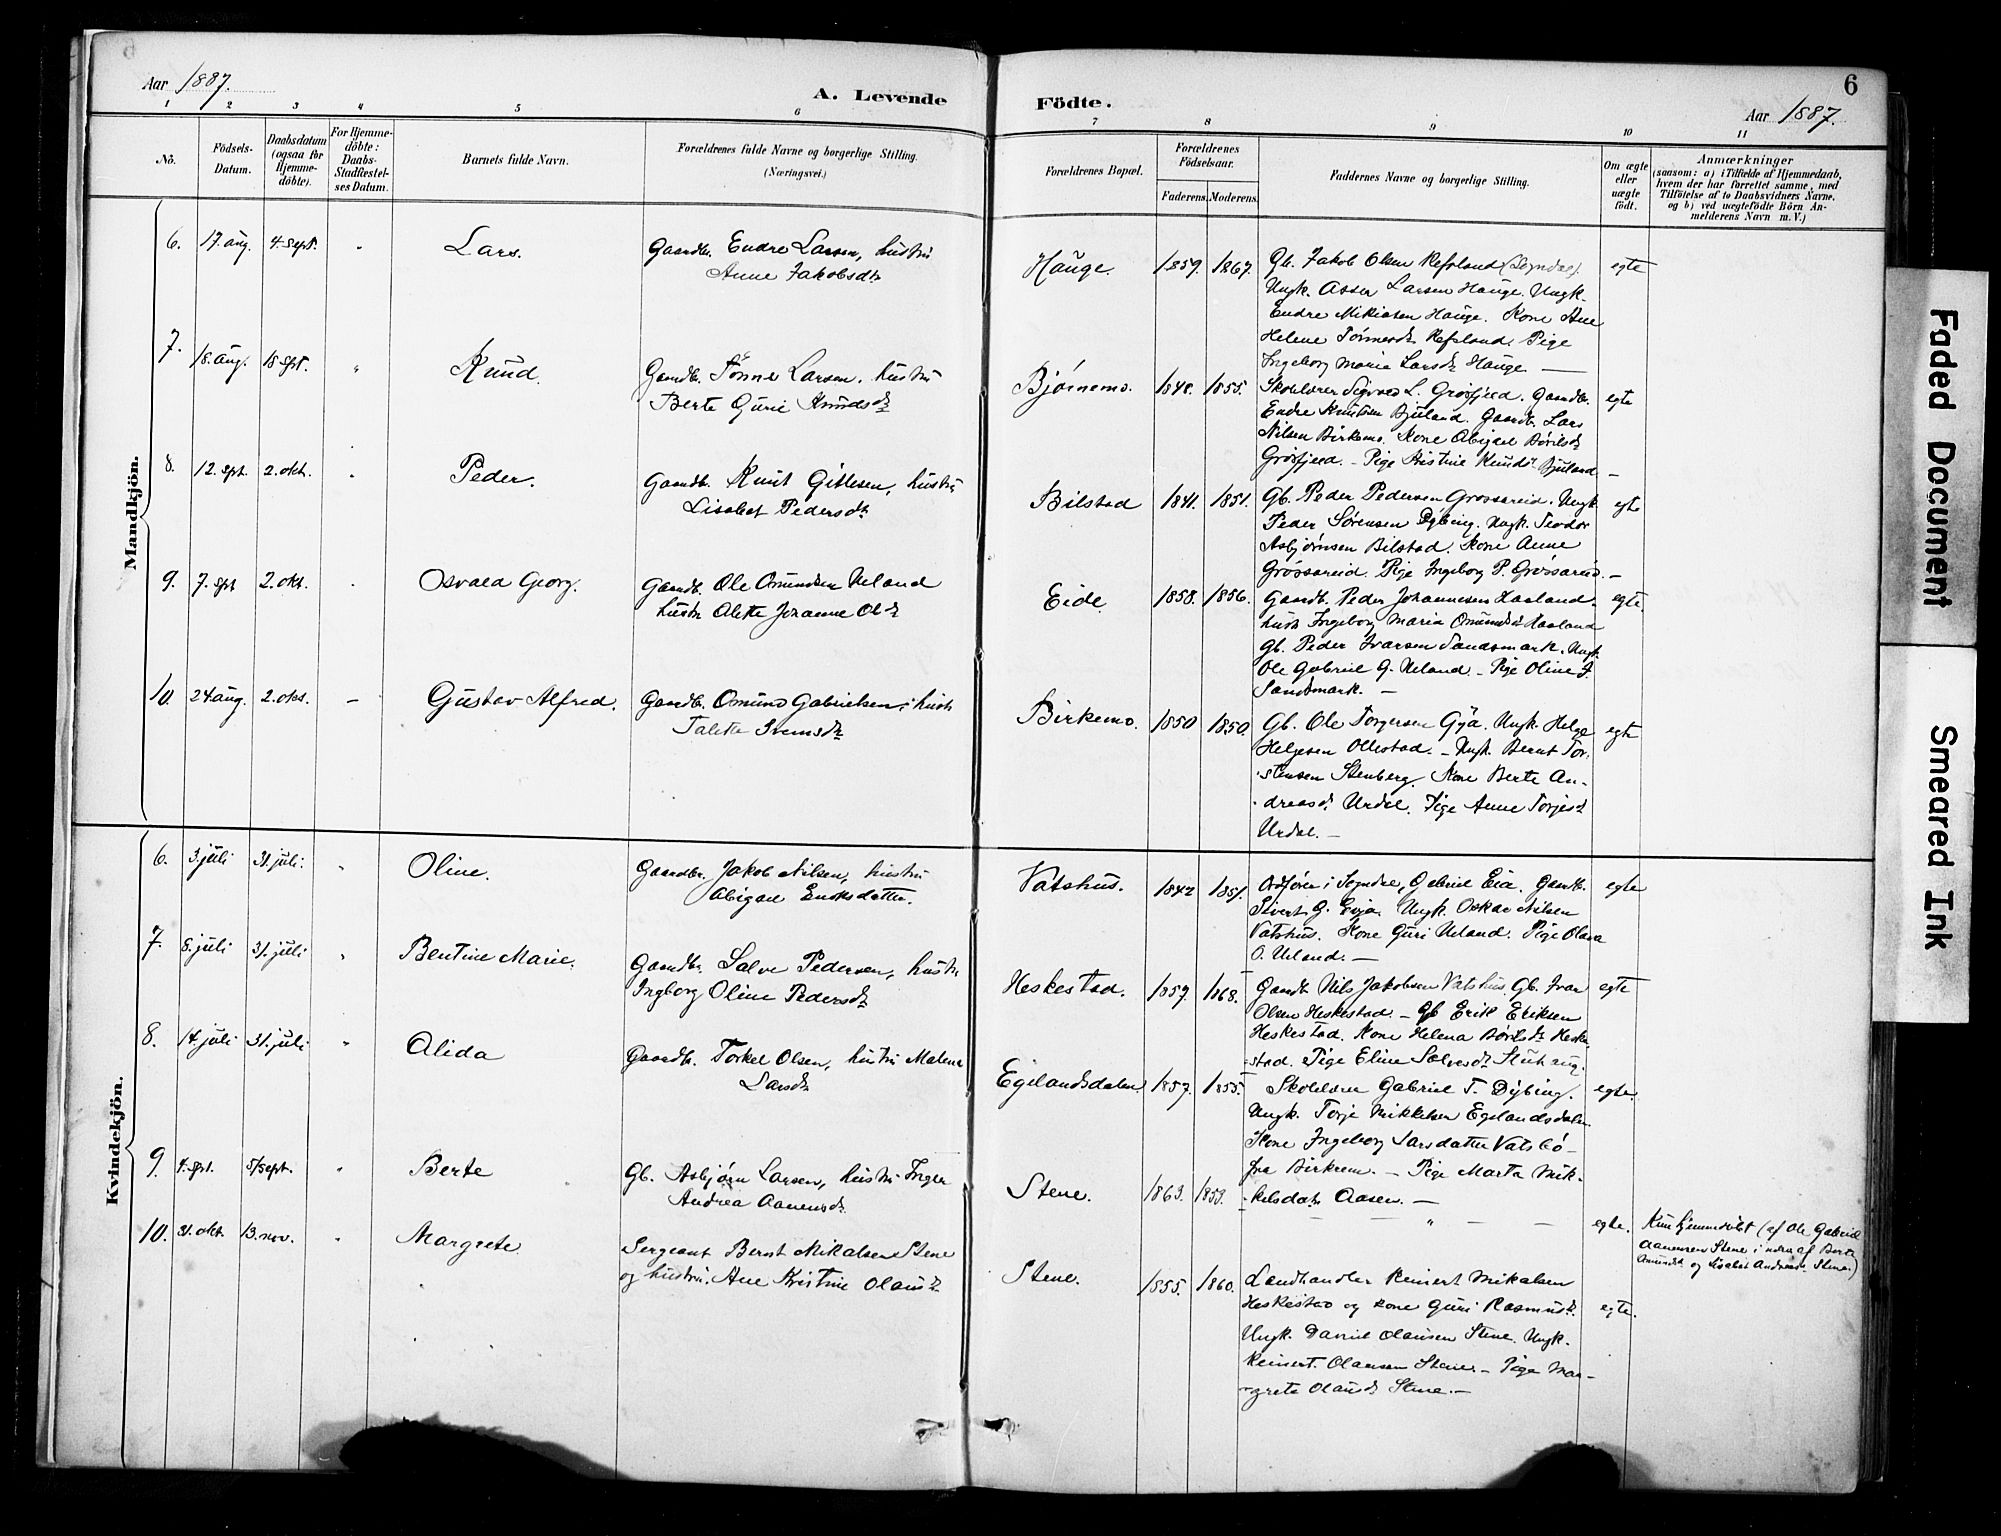 6
Aar 1887.
A. Levende
Födte.
Aar 1887.
1 2 3 4 5 6 7 8 9 10 11
Nö.
Födsels-Datum.
Daabsdatum (ogsaa för Hjemme-döbte).
For Hjemme-döbte: Daabs-Stadfæstel-ses Datum.
Barnets fulde Navn.
Forældrenes fulde Navne og borgerlige Stilling.
(Næringsvei.)
Forældrenes Bopæl.
Forældrenes Födselsaar.
Faderens. Moderens.
Faddernes Navne og borgerlige Stilling.
Om ægte eller uægte födt.
Anmærkninger
(saasom: a) i Tilfælde af Hjemmedaab,
hvem der har forrettet samme, med
Tilföielse af to Daabsvidners Navne,
og b) ved uægtefödte Börn An-
melderens Navn m. V.)
Mandkjön.
6. 17. aug. 4. sept. " Lars. Gaardbr. Endre Larsen, hustru
Anne Jakobsdt.
Hauge. 1859. 1867. Gb. Jakob Olsen Refsland (Sogndal). egte
Ungk. Asser Larsen Hauge. Ungk.
Endre Mikkalsen Hauge. Kone Ane
Helene Tønnesdt Refsland. Pige
Ingeborg Maria Larsdt Hauge —
7. 18. aug. 18 spt. " Knud. Gaardbr. Tønnes Larsen. hustru
Berte Gurie Knudsdt
Bjørnemo. 1848. 1855. Skolelærer Sigvald L. Grøsfjeld. Gaardbr. egte
Endre Knutsen Bjuland. Gaardb. Lars
Nilsen Birkemo. Kone Abigael Bøvilsdt
Grøsfjeld. — Pige Kristine Knuds. Bjuland —
8. 12. spt. 2. okt. " Peder. Gaardb. Knut Gitlesen, hustru
Lisabet Pedersdt
Bilstad 1841. 1851. Gb. Peder Pedersen Grøssareid. Ungk. egte
Peder Sørensen Dybing. Ungk. Teodor
Asbjørnsen Bilstad. Kone Anne
Grøssareid. Pige Ingeborg P. Grøssareid. —
9. 7. spt 2. okt. " Osvald Georg. Gaardb. Ole Omundsen Ueland
hustru Alette Johanne Olsdt
Eide. 1858. 1856. Gaardb. Peder Johannesen Haaland. egte
hust. Ingeborg Maria Omundsdt Haaland
Gb. Peder Ivarsen Sandsmark. Ungk.
Ole Gabriel G. Ueland. — Pige Oline I.
Sandsmark. —
10. 24 aug. 2. okt. — Gustav Alfred. Gaardb. Osmund Gabrielsen, hust.
Talette
Birkemo. 1850 1850. Gb. Ole Torgersen Gya. Ungk. Helge egte
Helgesen Ollestad. — Ungk. Bernt Tor-
stensen Stenberg. Kone Berte An-
dreasdt. Urdal. Pige Anne Torjesdt
Urdal. —
Kvindekjön.
6. 3. juli 31. juli. " Oline. Gaardbr. Jakob Nilsen, hustru
Abigael Eriksdatter.
Vatshus. 1842 1851. Ordfører i Sogndal, Gabriel Eia. Gaardb. egte
Sivert G. Evja. Ungk. Oskar Nilsen
Vatshus. Kone Guri Ueland. Pige Olava
O. Ueland. —
7. 8. juli 31. juli " Bentine Marie. Gaardbr. Salve Pedersen, hustru
Ingborg Oline Pedersdt
Heskestad. 1857. 1868. Gaardb Nils Jakobsen Vatshus. Gb. Ivar egte
Olsen Heskestad. — Gb Erik Eriksen
Heskestad. Kone Helena Bøvilsdt Heske-
stad. Pige Eline Salvesdt Stuhaug.
8. 14. juli 31. juli " Alida Gaardb. Torkel Olsen, hustru Malene
Larsdt
Egelandsdalen 1857. 1855. Skolelærer Gabriel T. Dybing. egte.
Ungk. Torje Mikkelsen Egelandsdalen.
Kone Ingeborg Larsdatter Vatsbø-
fra Birkrem. — Pige Marta Mik-
kelsdatr Aasen. —
9. 4. spt. 5/sept. " Berte Gb. Asbjørn Larsen, hustru Inger
Andrea Aanensdt
Stene. 1863. 1859. — — " — — egte. Kun hjemmedøbt (af Ole Gabriel
Aanensen Stene i nærv. af Berte
Amundsdt og Lisabet Andreasdt. Stene.)
10. 31. okt. 13. nov. " Margrete. Sergeant Bernt Mikalsen Stene
og hustru. Ane Kristine Olausdt
Stene. 1855. 1860. Landhandler Reinert Mikalsen egte.
Heskestad og kone Guri Rasmusdt.
Ungk. Daniel Olausen Stene. Ungk.
Reinert Olausen Stene. — Pige Mar-
grete Olausdt Stene. —
Faded Document
Smeared Ink